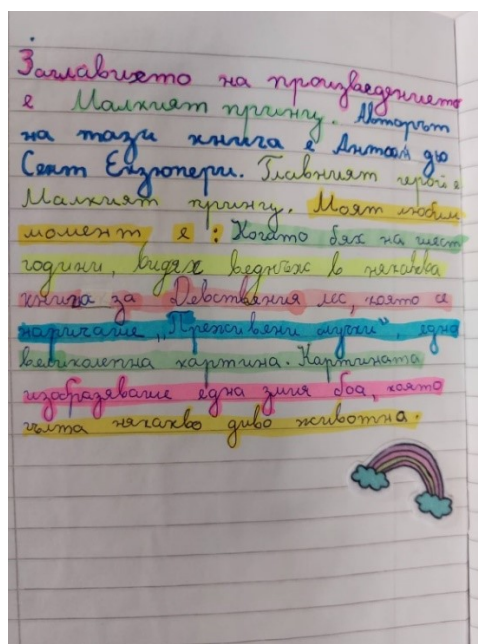 Заглавието на произведението
е Малкият принц. Авторът
на тази книга е Антоан дьо
Сент Екзюпери. Главният герой е
Малкият принц. Моят любим
момент е : Когато бях на шест
години, видях веднъж в някаква
книга за Девствения лес, която се
наричаше „Преживени случки", една
великолепна картина. Картината
изобразяваше една змия боа, която
гълта някакво диво животно.